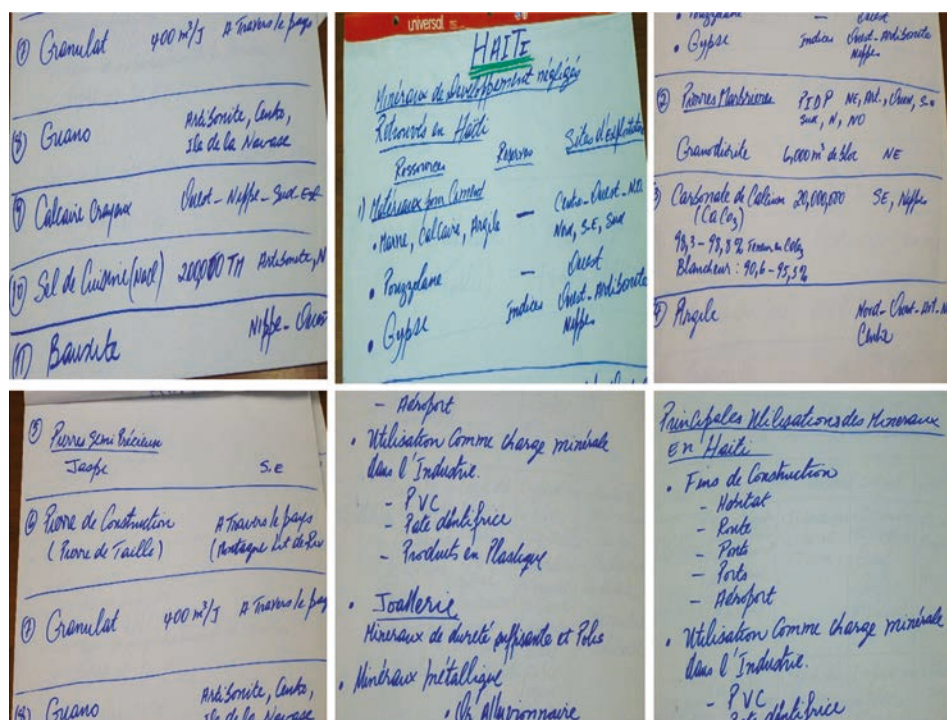 ⑦ Granulat 400 m³/J A Travers le pays
⑧ Guano Artibonite, Centre,
Ile de la Navase
⑨ Calcaire Crayeux Ouest - Nippe - Sud-Est
⑩ Sel de Cuisine (Nacl) 200,000 TM Artibonite, N
⑪ Bauxite Nippe - Ouest
universal
HAITI
Minéraux de Développement négligés
Retrouvés en Haiti
Ressources Reserves Sites d'Exploitation
1) Matériaux pour Ciment
• Marne, Calcaire, Argile — Centre-Ouest-N.O
Nord, S.E, Sud
• Pouzzolane — Ouest
• Gypse Indices Ouest-Artibonite
Nippes
• Pouzzolane — Ouest
• Gypse Indices Ouest-Artibonite
Nippe
② Pierres Marbrieres PIDP NE, Art., Ouest, S.E
Sud, N, NO
Granodiorite 6,000 m³ de bloc NE
3) Carbonate de Calcium 20,000,000 SE, Nippes
(CaCo3)
98,3 - 98,8% Teneur en CaCo3
Blancheur : 90,6 - 95,5%
④ Argile Nord-Ouest-Art-N
Centre
⑤ Pierres Semi Précieux
Jaspe S.E
⑥ Pierre de Construction A Travers le pays
(Pierre de Taille) (Montagne Lit de Riv
⑦ Granulat 400 m³/J A Travers le pay
⑧ Guano Artibonite, Centre,
Ile de la Navase
- Aéroport
• Utilisation Comme charge minérale
dans l'Industrie.
- PVC
- Pate dentifrice
- Produits en Plastique
• Joallerie
Mineraux de dureté suffisante et Polis
• Minéraux métallique
• Or Alluvionnaire
Principales Utilisations des Mineraux
En Haiti
• Fins de Construction
- Habitat
- Route
- Ponts
- Ports
- Aéroport
• Utilisation Comme charge minérale
dans l'Industrie.
- PVC
- Pate dentifrice